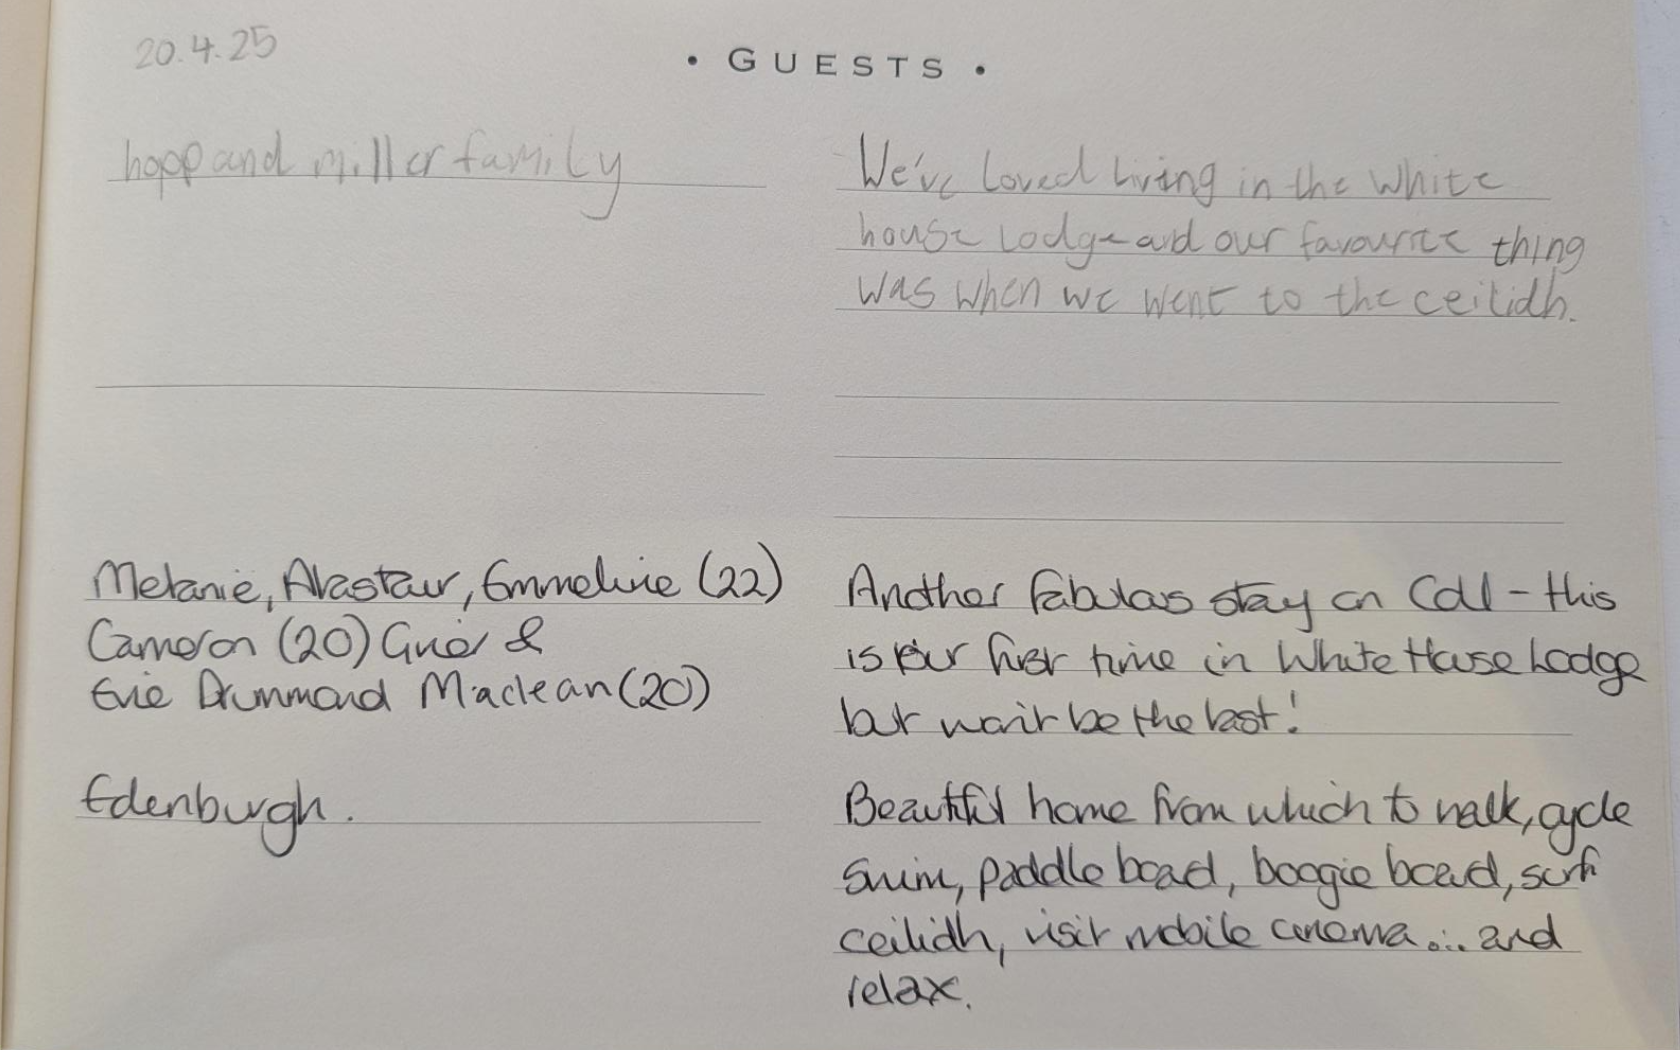 20.4.25
• GUESTS •
hopp and miller family
We've loved living in the white
house lodge and our favourite thing
was when we went to the ceilidh.
Melanie, Alastair, Emmeline (22)
Cameron (20) &
Evie Drummond Maclean (20)
Edenburgh.
Another fabulous stay on Coll - this
is our first time in White House Lodge
but won't be the last!
Beautiful home from which to walk, cycle
swim, paddle board, boogie board, surf
ceilidh, visit mobile cinema... and
relax.